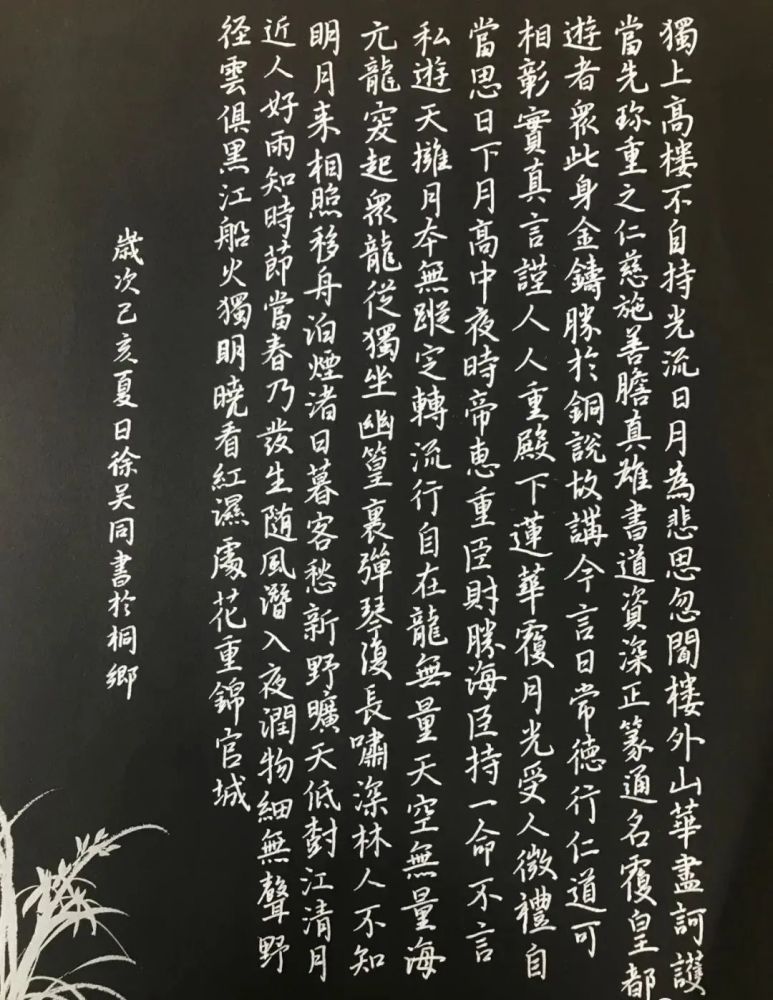 獨上高樓不自持光流日月為悲思忽聞樓外山華盡訶護
當先珎重之仁慈施善瞻真雄書道資深正篆通名覆皇都
遊者眾此身金鑄勝於銅說故講今言日常德行仁道可
相彰實真言謹人人重殿下蓮華覆月光受人微禮自
當思日下月高中夜時帝惠重臣財勝海臣持一命不言
私遊天擁月本無蹤定轉流行自在龍無量天空無量海
元龍突起眾龍從獨坐幽篁裏彈琴復長嘯深林人不知
明月来相照移舟泊煙渚日暮客愁新野曠天低樹江清月
近人好雨知時節當春乃發生随風潛入夜潤物細無聲野
径雲俱黑江船火獨明曉看紅濕處花重錦官城
歲次己亥夏日徐吴同書於桐鄉